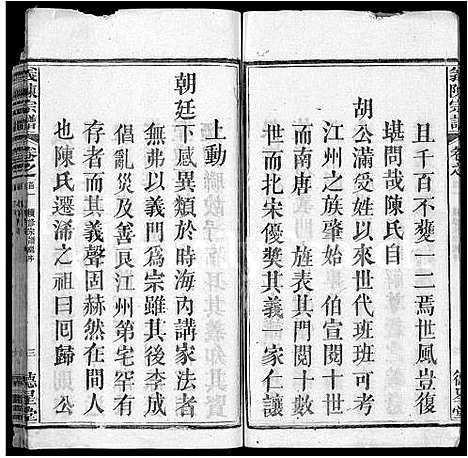 義陳宗譜
德星堂
且千百不變一二焉世風豈復
堪問哉陳氏自
胡公滿受姓以來世代班班可紀
江州之族肇始
伯宣閱十世
而南唐
表其門閱十數
世而北宋優奬其義一家仁讓
上動
朝廷下感異類於時海內講家法者
無弗以義門爲宗雖其後李成
倡亂災及善艮江州第宅罕有
存者而其義聲固赫然在人間
也陳氏遷潘之祖曰囘歸
公
義陳宗譜
卷之一
三
德星堂